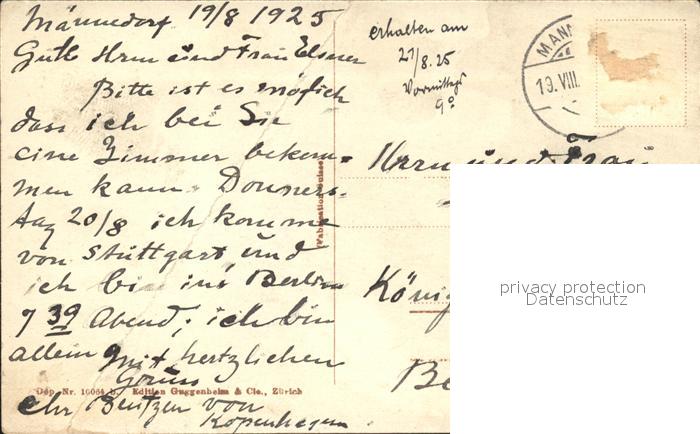 Männedorf 19/8 1925
Gute Herrn und Frau Elsner
Bitte ist es möglich
dass ich bei Sie
eine Zimmer bekom-
men kann. Donners-
tag 20/8 ich komme
von Stuttgart, und
ich bin ins Berlin
7 39 Abend; ich bin
allein. Mit hertzlichen
Gruss
Chr Bentzen von
Kopenhagen.
Dép. Nr. 10064 b. Edition Guggenheim & Cie., Zürich
erhalten am
21/8.25
Vormittags
9°
MÄNN
19.VIII.
Herrn und Frau
König
Be
privacy protection
Datenschutz